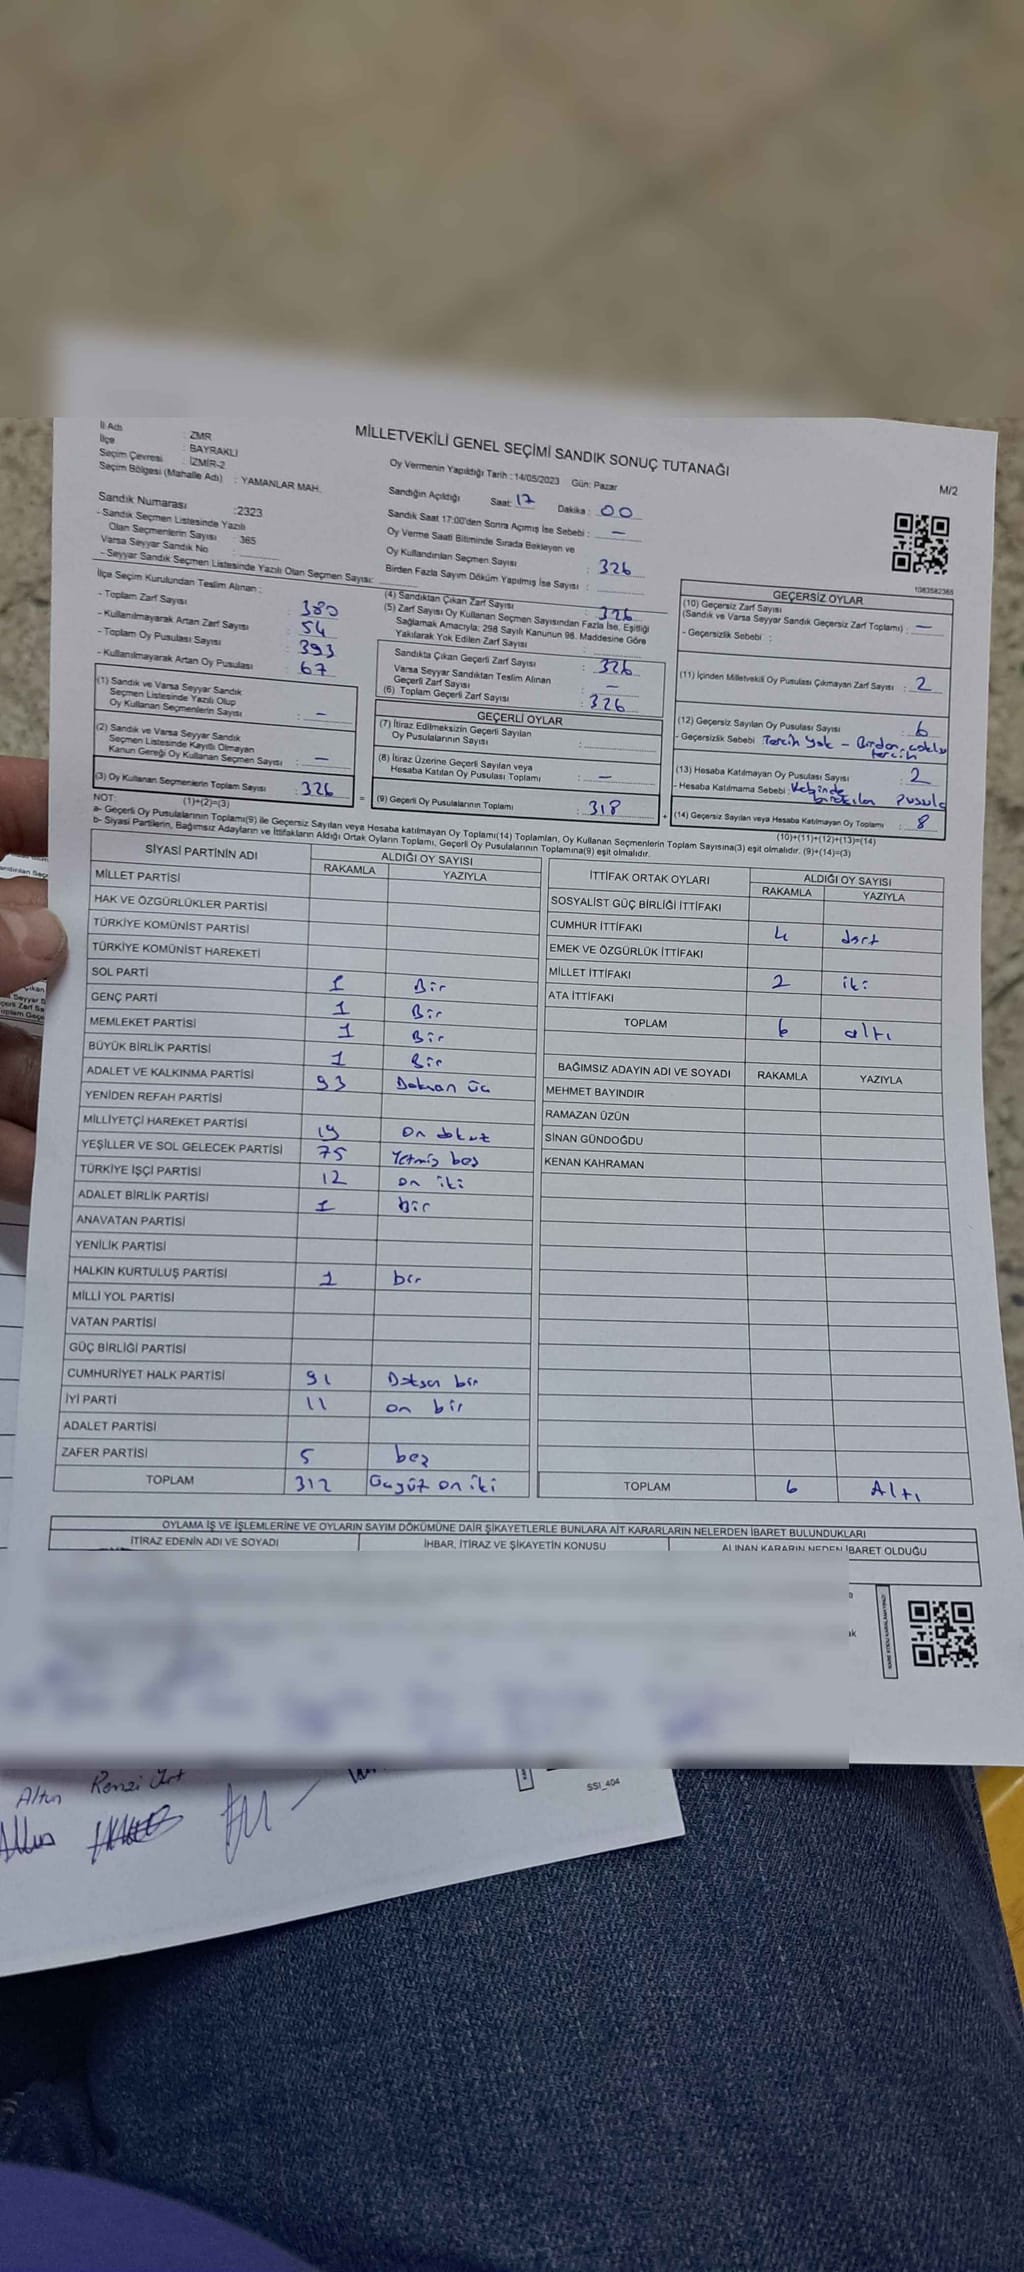 MİLLETVEKİLİ GENEL SEÇİMİ SANDIK SONUÇ TUTANAĞI
M/2
İl Adı : ZMR
İlçe : BAYRAKLI
Seçim Çevresi : İZMİR-2
Seçim Bölgesi (Mahalle Adı) : YAMANLAR MAH.
Sandık Numarası :2323
- Sandık Seçmen Listesinde Yazılı
Olan Seçmenlerin Sayısı : 365
Varsa Seyyar Sandık No :
- Seyyar Sandık Seçmen Listesinde Yazılı Olan Seçmen Sayısı:
Oy Vermenin Yapıldığı Tarih : 14/05/2023 Gün: Pazar
Sandığın Açıldığı Saat: 17 Dakika : 00
Sandık Saat 17:00'den Sonra Açımış İse Sebebi : —
Oy Verme Saati Bitiminde Sırada Bekleyen ve
Oy Kullandırılan Seçmen Sayısı : 326
Birden Fazla Sayım Döküm Yapılmış İse Sayısı :
1083582365
İlçe Seçim Kurulundan Teslim Alınan :
- Toplam Zarf Sayısı : 380
- Kullanılmayarak Artan Zarf Sayısı : 54
- Toplam Oy Pusulası Sayısı : 393
- Kullanılmayarak Artan Oy Pusulası : 67
(1) Sandık ve Varsa Seyyar Sandık
Seçmen Listesinde Yazılı Olup
Oy Kullanan Seçmenlerin Sayısı : —
(2) Sandık ve Varsa Seyyar Sandık
Seçmen Listesinde Kayıtlı Olmayan
Kanun Gereği Oy Kullanan Seçmen Sayısı : —
(3) Oy Kullanan Seçmenlerin Toplam Sayısı : 326
(1)+(2)=(3)
(4) Sandıktan Çıkan Zarf Sayısı : 326
(5) Zarf Sayısı Oy Kullanan Seçmen Sayısından Fazla İse, Eşitliği
Sağlamak Amacıyla; 298 Sayılı Kanunun 98. Maddesine Göre
Yakılarak Yok Edilen Zarf Sayısı :
Sandıkta Çıkan Geçerli Zarf Sayısı : 326
Varsa Seyyar Sandıktan Teslim Alınan
Geçerli Zarf Sayısı : —
(6) Toplam Geçerli Zarf Sayısı : 326
GEÇERLİ OYLAR
(7) İtiraz Edilmeksizin Geçerli Sayılan
Oy Pusulalarının Sayısı :
(8) İtiraz Üzerine Geçerli Sayılan veya
Hesaba Katılan Oy Pusulası Toplamı : —
= (9) Geçerli Oy Pusulalarının Toplamı : 318
GEÇERSİZ OYLAR
(10) Geçersiz Zarf Sayısı
(Sandık ve Varsa Seyyar Sandık Geçersiz Zarf Toplamı) : —
- Geçersizlik Sebebi :
(11) İçinden Milletvekili Oy Pusulası Çıkmayan Zarf Sayısı : 2
(12) Geçersiz Sayılan Oy Pusulası Sayısı : 6
- Geçersizlik Sebebi Tercih Yok - Birden çoklu
tercih
(13) Hesaba Katılmayan Oy Pusulası Sayısı : 2
- Hesaba Katılmama Sebebi : pusula
+ (14) Geçersiz Sayılan veya Hesaba Katılmayan Oy Toplamı : 8
(10)+(11)+(12)+(13)=(14)
NOT:
a- Geçerli Oy Pusulalarının Toplamı(9) ile Geçersiz Sayılan veya Hesaba katılmayan Oy Toplamı(14) Toplamları, Oy Kullanan Seçmenlerin Toplam Sayısına(3) eşit olmalıdır. (9)+(14)=(3)
b- Siyasi Partilerin, Bağımsız Adayların ve İttifakların Aldığı Ortak Oyların Toplamı, Geçerli Oy Pusulalarının Toplamına(9) eşit olmalıdır.
SİYASİ PARTİNİN ADI ALDIĞI OY SAYISI
RAKAMLA YAZIYLA
MİLLET PARTİSİ
HAK VE ÖZGÜRLÜKLER PARTİSİ
TÜRKİYE KOMÜNİST PARTİSİ
TÜRKİYE KOMÜNİST HAREKETİ
SOL PARTİ 1 Bir
GENÇ PARTİ 1 Bir
MEMLEKET PARTİSİ 1 Bir
BÜYÜK BİRLİK PARTİSİ 1 Bir
ADALET VE KALKINMA PARTİSİ 93 Doksan üç
YENİDEN REFAH PARTİSİ
MİLLİYETÇİ HAREKET PARTİSİ 19 On dokuz
YEŞİLLER VE SOL GELECEK PARTİSİ 75 Yetmiş beş
TÜRKİYE İŞÇİ PARTİSİ 12 on iki
ADALET BİRLİK PARTİSİ 1 bir
ANAVATAN PARTİSİ
YENİLİK PARTİSİ
HALKIN KURTULUŞ PARTİSİ 1 bir
MİLLİ YOL PARTİSİ
VATAN PARTİSİ
GÜÇ BİRLİĞİ PARTİSİ
CUMHURİYET HALK PARTİSİ 91 Doksan bir
İYİ PARTİ 11 on bir
ADALET PARTİSİ
ZAFER PARTİSİ 5 beş
TOPLAM 312 Üçyüz on iki
İTTİFAK ORTAK OYLARI ALDIĞI OY SAYISI
RAKAMLA YAZIYLA
SOSYALİST GÜÇ BİRLİĞİ İTTİFAKI
CUMHUR İTTİFAKI 4 dört
EMEK VE ÖZGÜRLÜK İTTİFAKI
MİLLET İTTİFAKI 2 iki
ATA İTTİFAKI
TOPLAM 6 altı
BAĞIMSIZ ADAYIN ADI VE SOYADI RAKAMLA YAZIYLA
MEHMET BAYINDIR
RAMAZAN ÜZÜN
SİNAN GÜNDOĞDU
KENAN KAHRAMAN
TOPLAM 6 Altı
OYLAMA İŞ VE İŞLEMLERİNE VE OYLARIN SAYIM DÖKÜMÜNE DAİR ŞİKAYETLERLE BUNLARA AİT KARARLARIN NELERDEN İBARET BULUNDUKLARI
İTİRAZ EDENİN ADI VE SOYADI İHBAR, İTİRAZ VE ŞİKAYETİN KONUSU ALINAN KARARIN NEDEN İBARET OLDUĞU
Altun
SSI_404